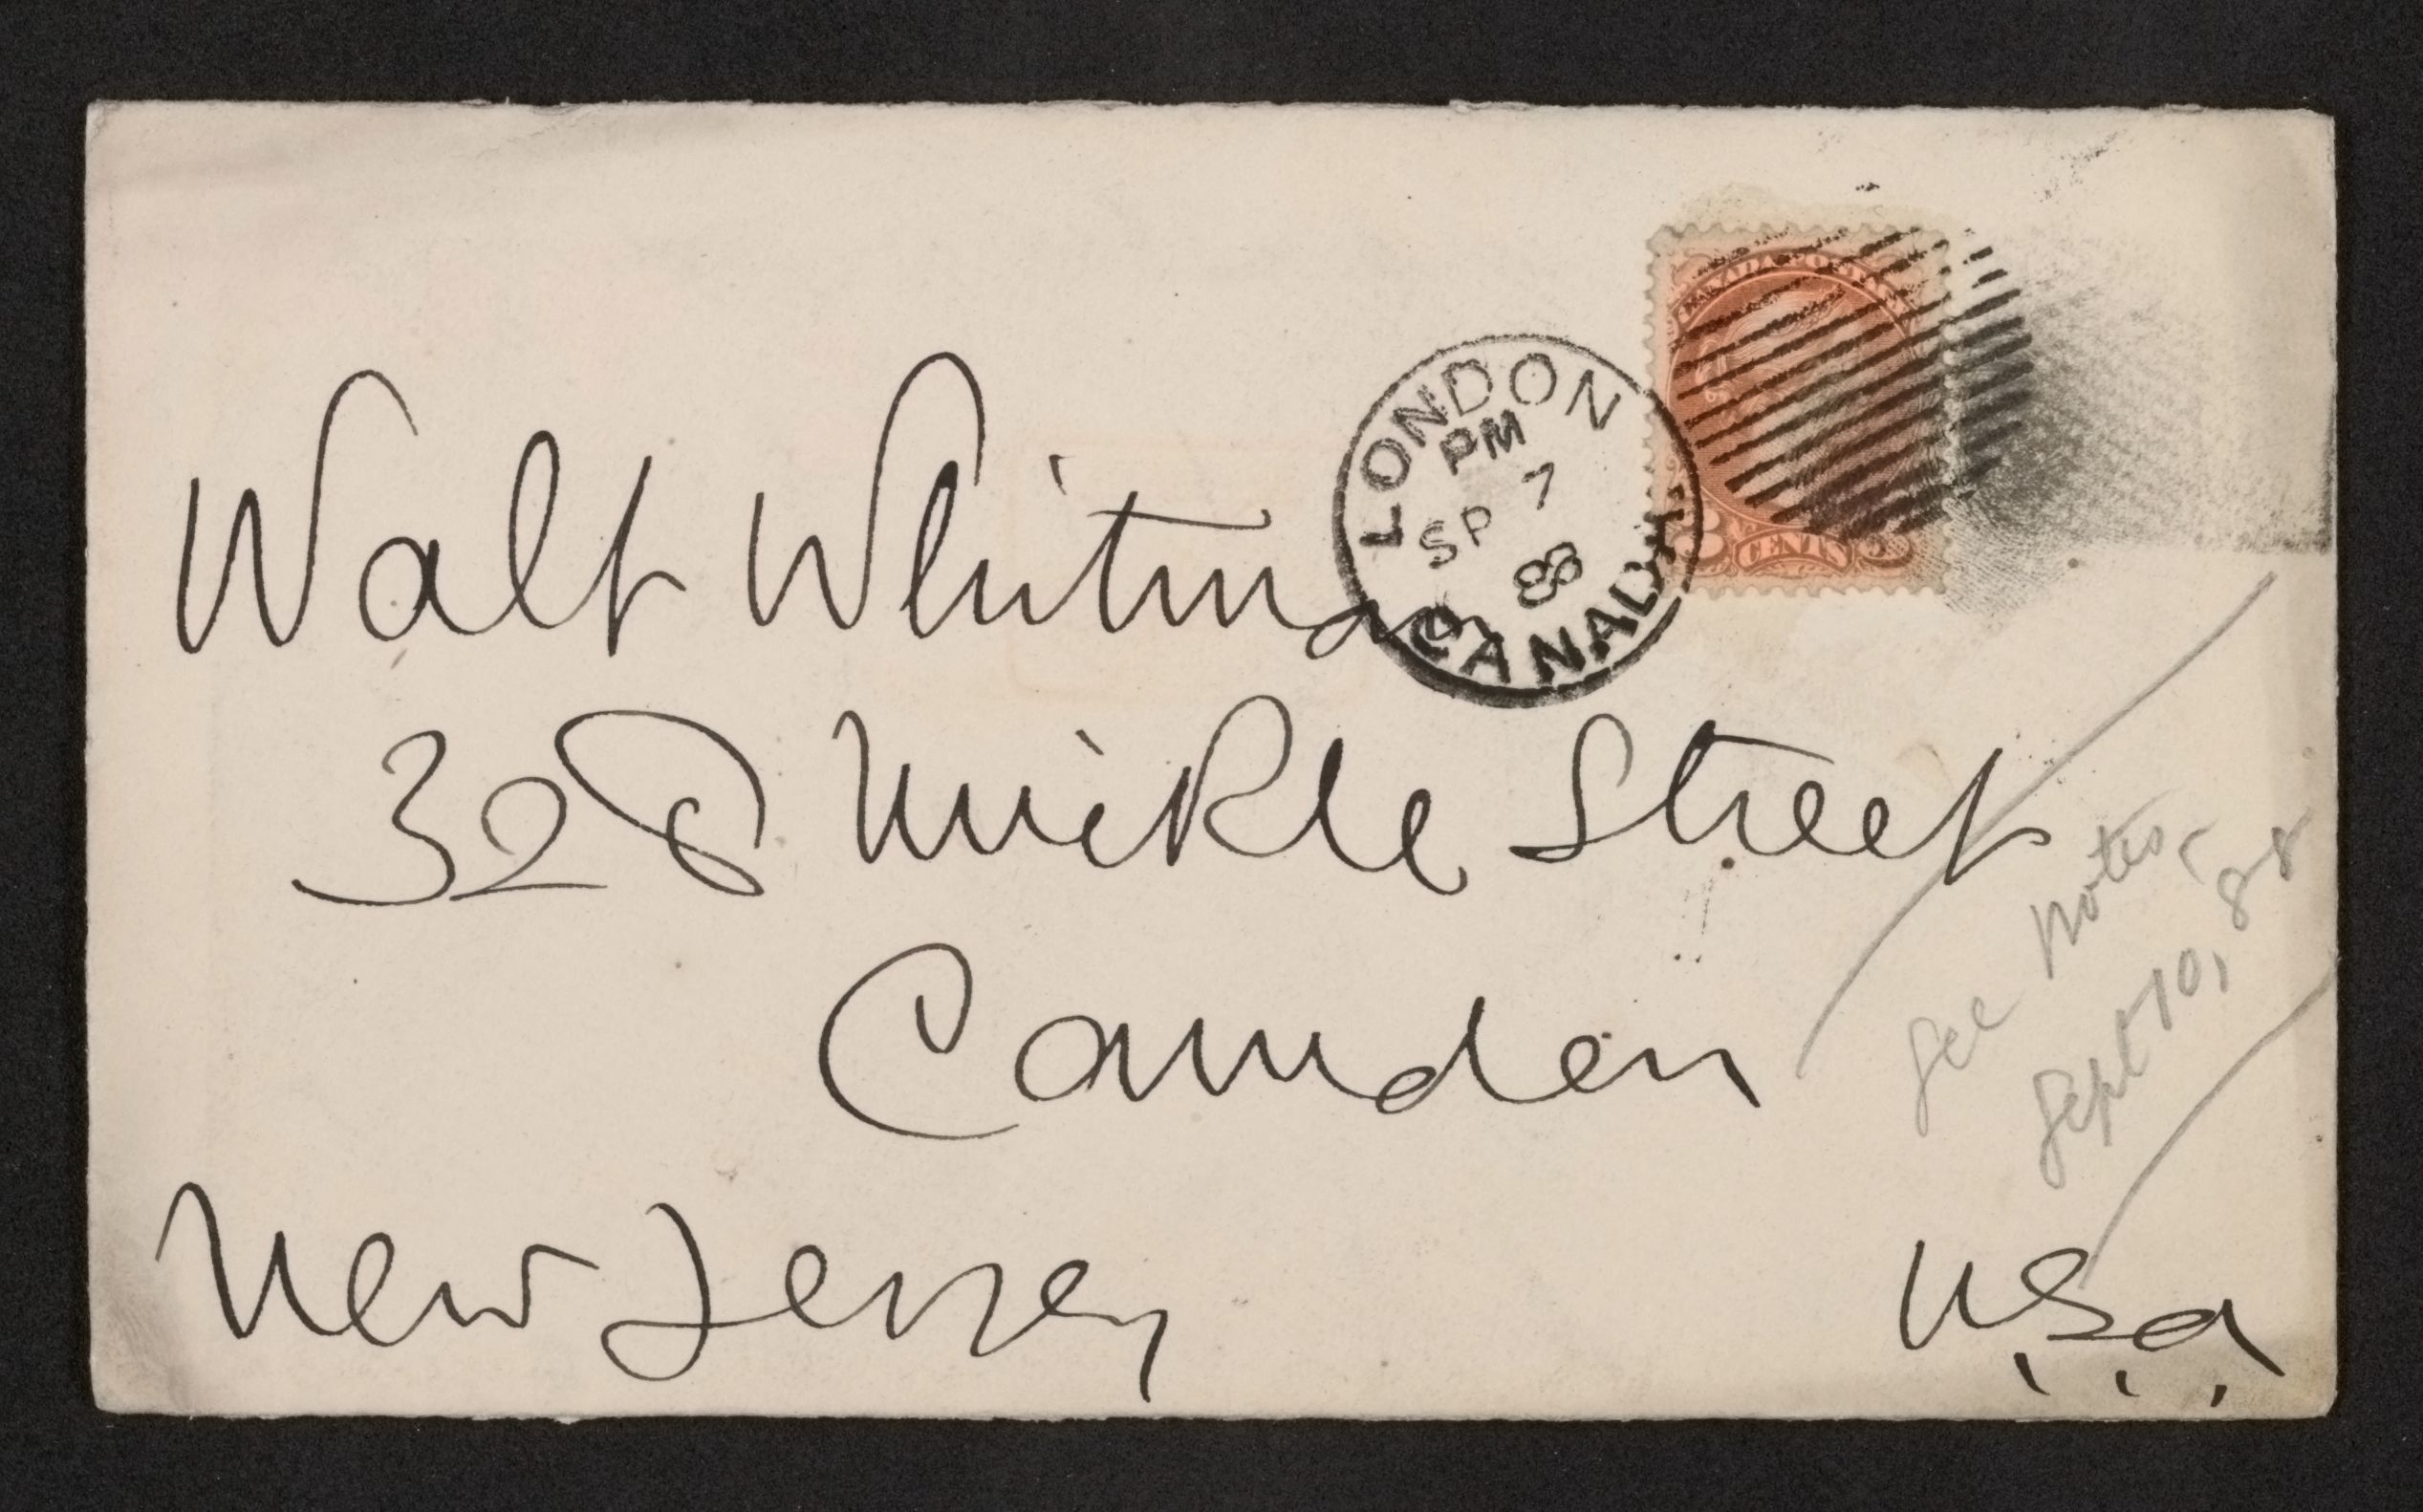 CANADA POSTAGE
3 CENTS 3
LONDON
PM
SP 7
88
CANADA
Walt Whitman
328 Mickle Street
Camden
New Jersey
U.S.A.
See notes
Sept 10, 88